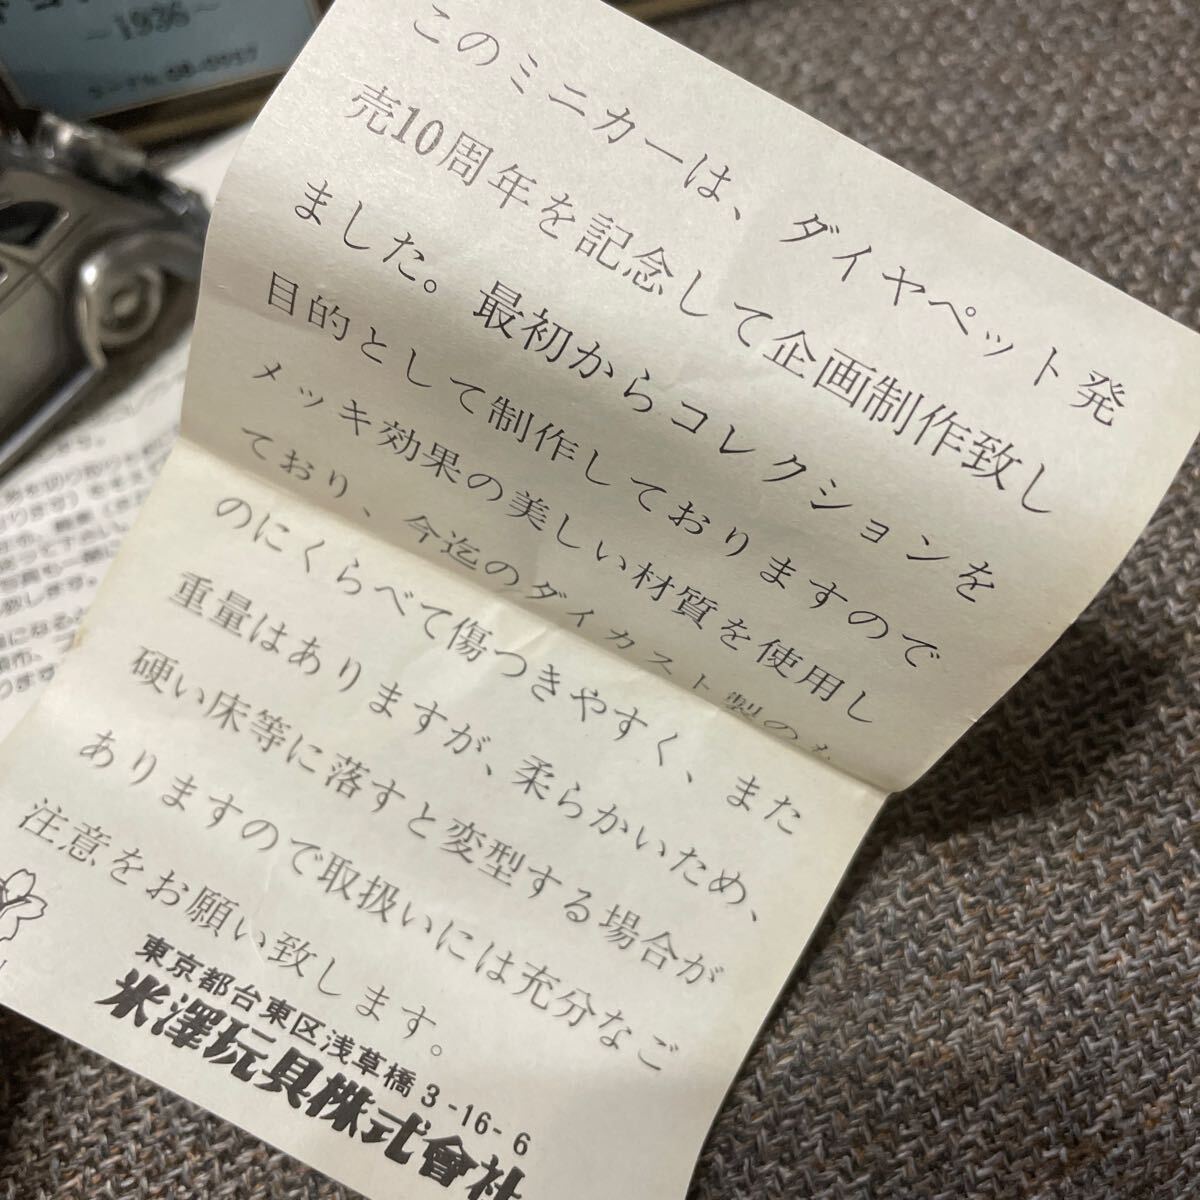 ~1936~
このミニカーは、ダイヤペット発
売10周年を記念して企画制作致し
ました。最初からコレクションを
目的として制作しておりますので
メッキ効果の美しい材質を使用し
ており、今迄のダイカスト製のも
のにくらべて傷つきやすく、また
重量はありますが、柔らかいため、
硬い床等に落すと変型する場合が
ありますので取扱いには充分なご
注意をお願い致します。
東京都台東区浅草橋3-16-6
米澤玩具株式會社